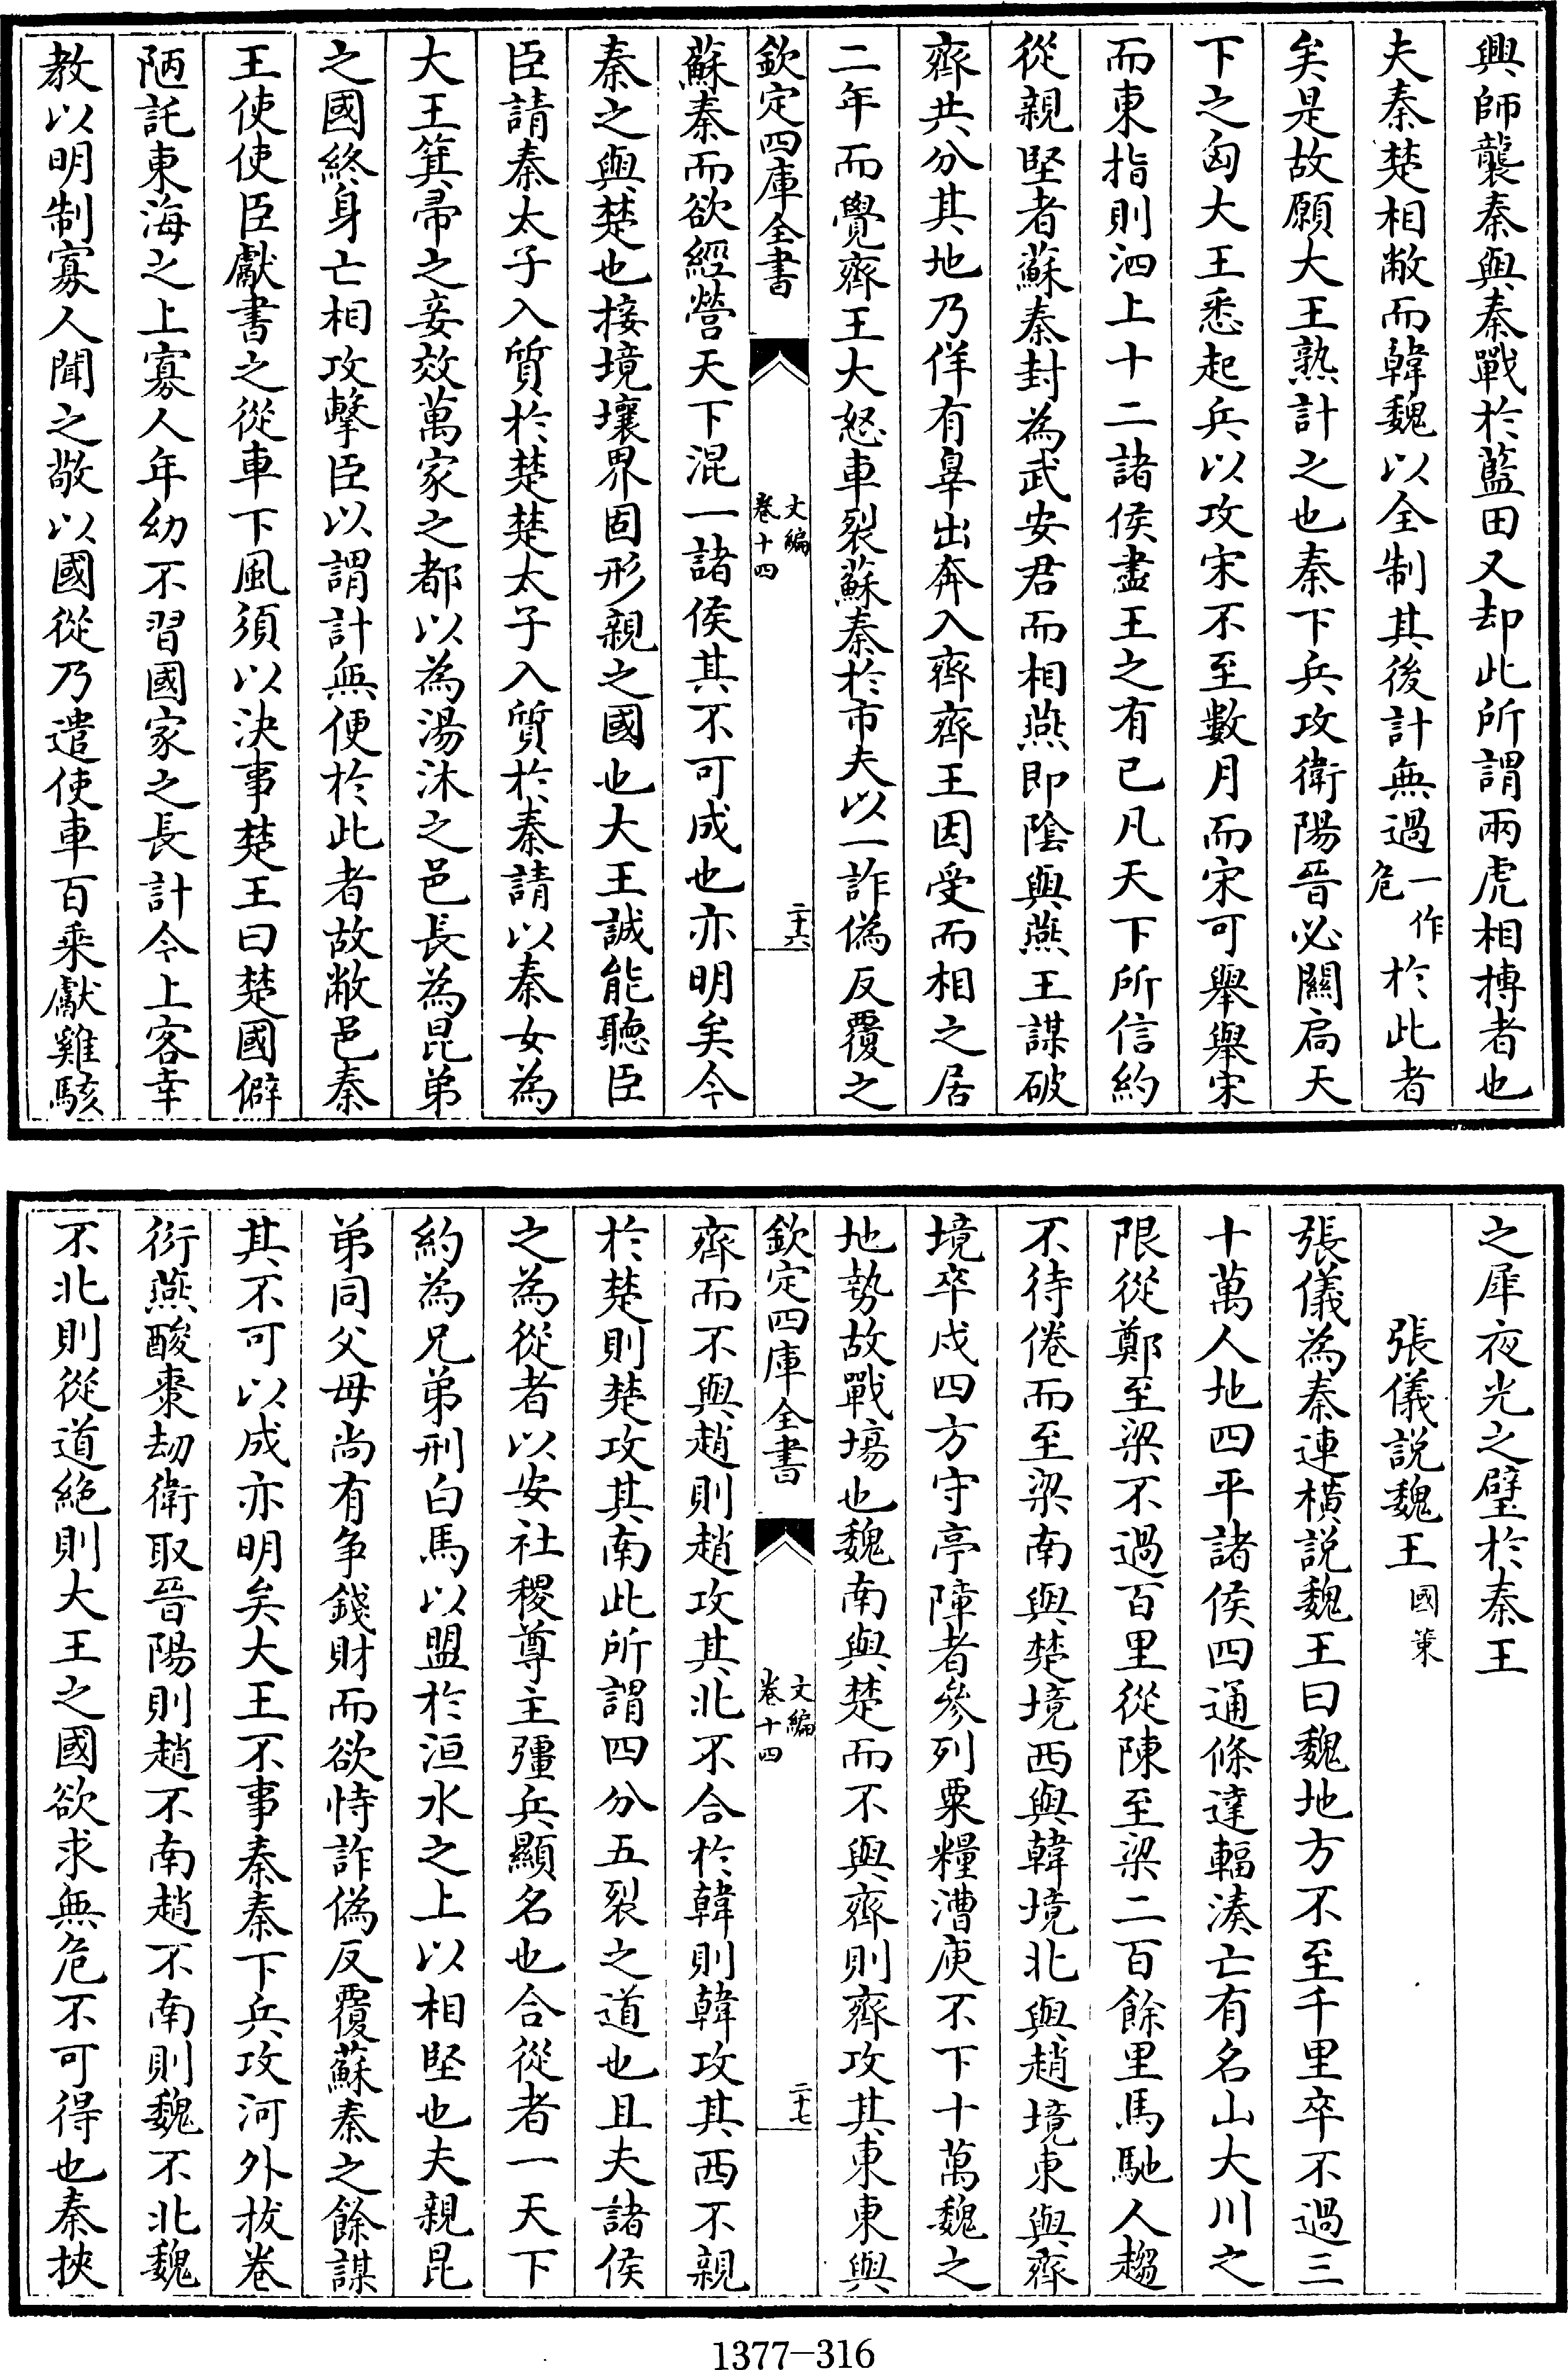 興師襲秦與秦戰於藍田又却此所謂兩虎相搏者也
夫秦楚相敝而韓魏以全制其後計無過一作危於此者
矣是故願大王熟計之也秦下兵攻衛陽晉必關扃天
下之匈大王悉起兵以攻宋不至數月而宋可舉舉宋
而東指則泗上十二諸侯盡王之有已凡天下所信約
從親堅者蘇秦封為武安君而相燕即陰與燕王謀破
齊共分其地乃佯有辠出奔入齊齊王因受而相之居
二年而覺齊王大怒車裂蘇秦於市夫以一詐偽反覆之
欽定四庫全書 文編 卷十四 二十六
蘇秦而欲經營天下混一諸侯其不可成也亦明矣今
秦之與楚也接境壤界固形親之國也大王誠能聽臣
臣請秦太子入質於楚楚太子入質於秦請以秦女為
大王箕帚之妾效萬家之都以為湯沐之邑長為昆弟
之國終身亡相攻擊臣以謂計無便於此者故敝邑秦
王使使臣獻書之從車下風須以決事楚王曰楚國僻
陋託東海之上寡人年幼不習國家之長計今上客幸
教以明制寡人聞之敬以國從乃遣使車百乘獻雞駭
之犀夜光之璧於秦王
張儀說魏王國策
張儀為秦連橫說魏王曰魏地方不至千里卒不過三
十萬人地四平諸侯四通條達輻湊亡有名山大川之
限從鄭至梁不過百里從陳至梁二百餘里馬馳人趨
不待倦而至梁南與楚境西與韓境北與趙境東與齊
境卒戍四方守亭障者參列粟糧漕庾不下十萬魏之
地勢故戰場也魏南與楚而不與齊則齊攻其東東與
欽定四庫全書 文編 卷十四 二十七
齊而不與趙則趙攻其北不合於韓則韓攻其西不親
於楚則楚攻其南此所謂四分五裂之道也且夫諸侯
之為從者以安社稷尊主彊兵顯名也合從者一天下
約為兄弟刑白馬以盟於洹水之上以相堅也夫親昆
弟同父母尚有爭錢財而欲恃詐偽反覆蘇秦之餘謀
其不可以成亦明矣大王不事秦秦下兵攻河外拔卷
衍燕酸棗劫衛取晉陽則趙不南趙不南則魏不北魏
不北則從道絕則大王之國欲求無危不可得也秦挾
1377-316